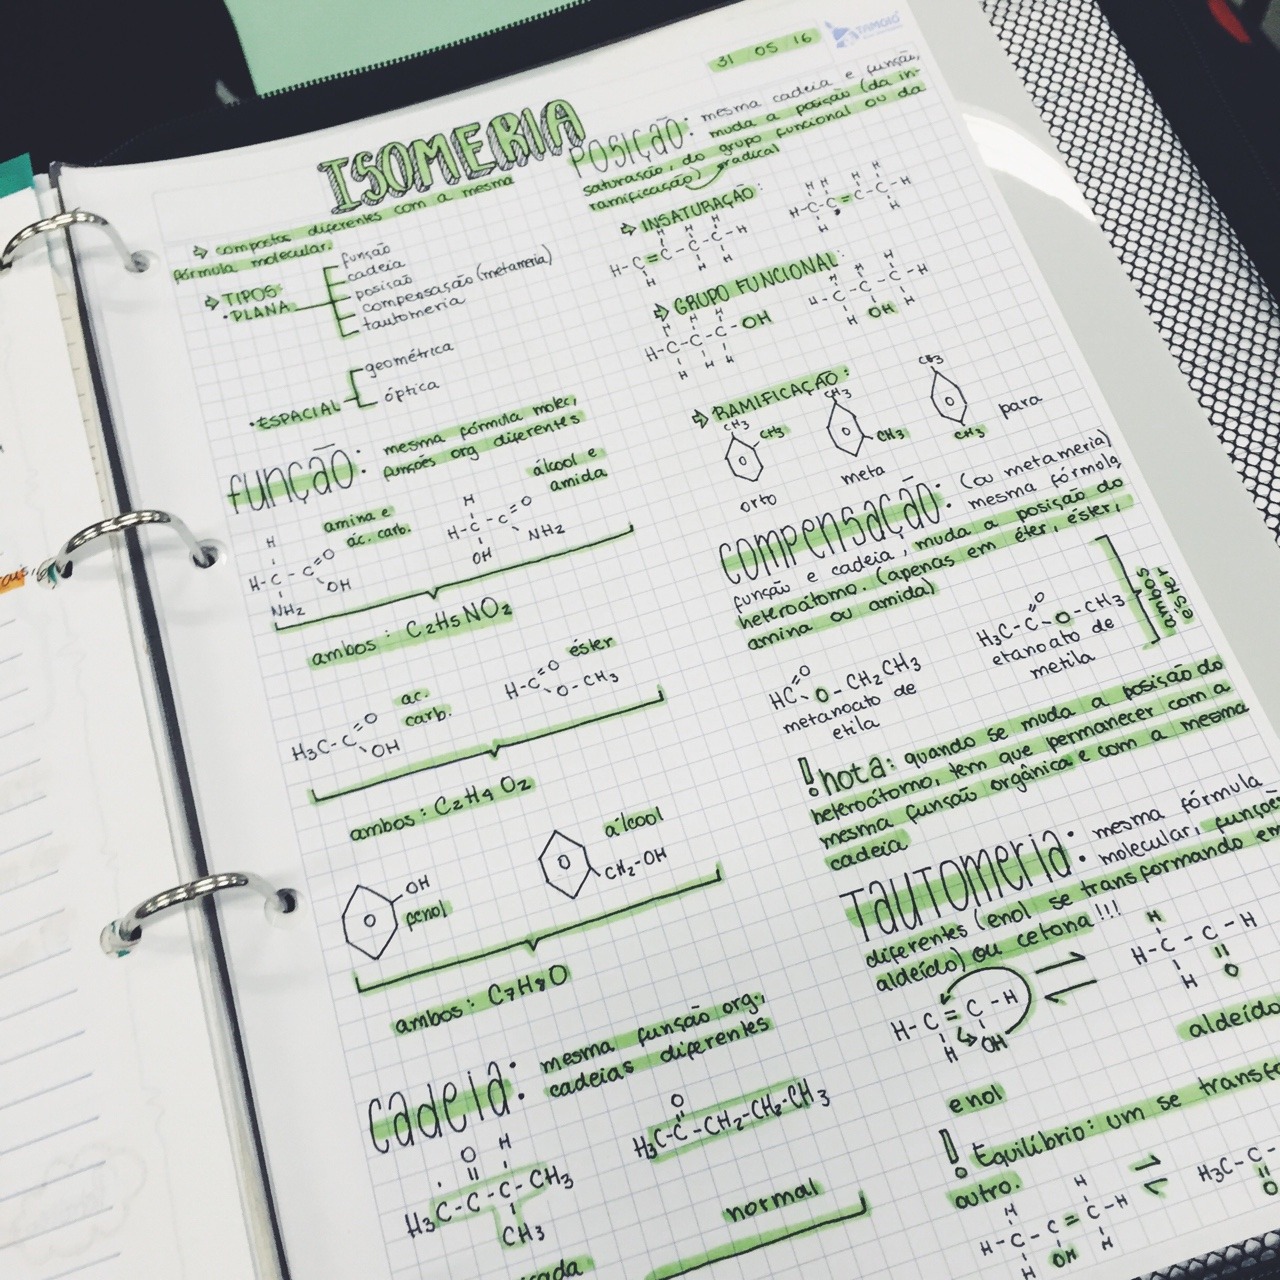 TAMOIO
31 05 16
ISOMERIA
⇨ compostos diferentes com a mesma
fórmula molecular.
⇨ TIPOS:
• PLANA
função
cadeia
posição
compensação (metameria)
tautomeria
• ESPACIAL
geométrica
óptica
função: mesma fórmula molec,
funções org diferentes
amina e
ác. carb.
H
H-C-C=O
OH
NH2
álcool e
amida
H
H-C-C=O
OH
NH2
ambos: C2H5NO2
ac.
carb.
H3C-C=O
OH
éster
H-C=O
O-CH3
ambos: C2H4O2
OH
fenol
álcool
CH2-OH
ambos: C7H8O
cadeia: mesma função org,
cadeias diferentes
O H
H3C-C-C-CH3
CH3
O
H3C-C-CH2-CH2-CH3
normal
posição: mesma cadeia e função,
muda a posição (da in-
saturação, do grupo funcional ou da
ramificação) radical
⇨ INSATURAÇÃO:
H H H
H-C=C-C-C-H
H H H
H H H H
H-C-C=C-C-H
H H
⇨ GRUPO FUNCIONAL:
H H H
H-C-C-C-OH
H H H
H H H
H-C-C-C-H
H OH H
⇨ RAMIFICAÇÃO:
CH3
CH3
orto
CH3
CH3
meta
CH3
CH3
para
compensação: (ou metameria)
mesma fórmula
função e cadeia, muda a posição do
heteroátomo. (apenas em éter, éster,
amina ou amida)
HC=O
O-CH2CH3
metanoato de
etila
H3C-C=O
O-CH3
etanoato de
metila
ambos
ésteres
! nota: quando se muda a posição do
heteroátomo, tem que permanecer com a
mesma função orgânica e com a mesma
cadeia
Tautomeria: mesma fórmula
molecular, funções
diferentes (enol se transformando em
aldeído) ou cetona!!!
H-C=C-H
H OH
enol
⇌
H
H-C-C-H
H O
aldeído
! Equilíbrio: um se transfo
outro.
H H
H-C-C=C-H
H OH H
⇌
H3C-C-
O